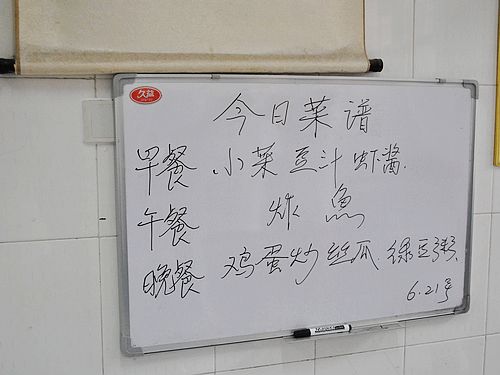 久益
今日菜谱
早餐 小菜 豆汁 虾酱.
午餐 炸魚
晚餐 鸡蛋炒丝瓜.绿豆粥.
6.21号